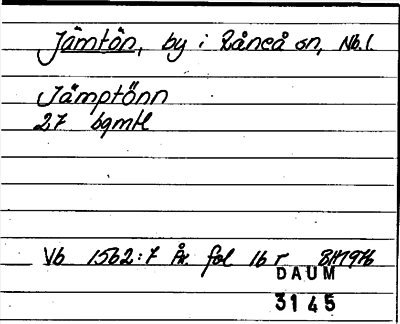 Jämtön, by i Råneå sn, Nb.l.
Jämptönn
27 bgmtl
Vb 1562:7 År. fol 16 r 8H1976
DAUM
3145